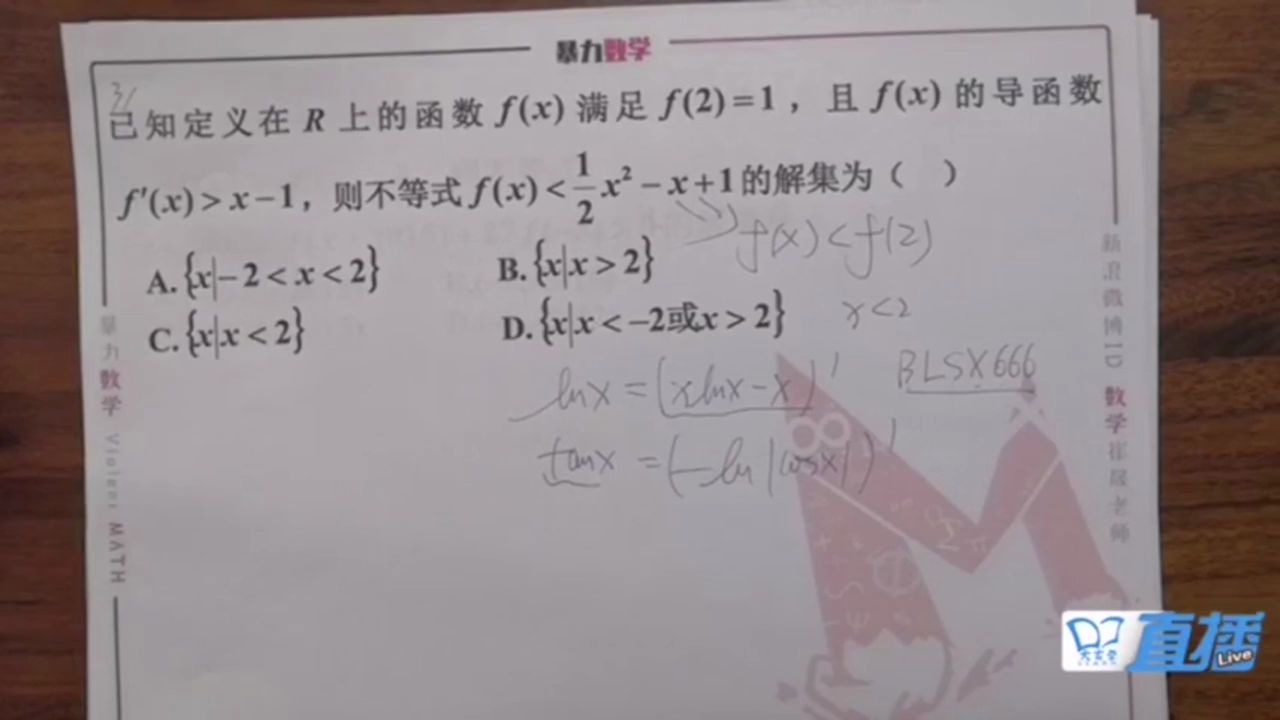 暴力数学
3/
已知定义在 R 上的函数 f(x) 满足 f(2)=1，且 f(x) 的导函数
f′(x)>x−1，则不等式 f(x)<\frac{1}{2}x²−x+1的解集为（ ）
f(x)<f(2)
A.{x|−2<x<2} B.{x|x>2}
C.{x|x<2} D.{x|x<−2或x>2}
x<2
lnx=(xlnx−x)′
BLSX666
tanx=(−ln|cosx|)′
暴力数学 Violent MATH
新浪微博ID 数学崔晟老师
直播
Live